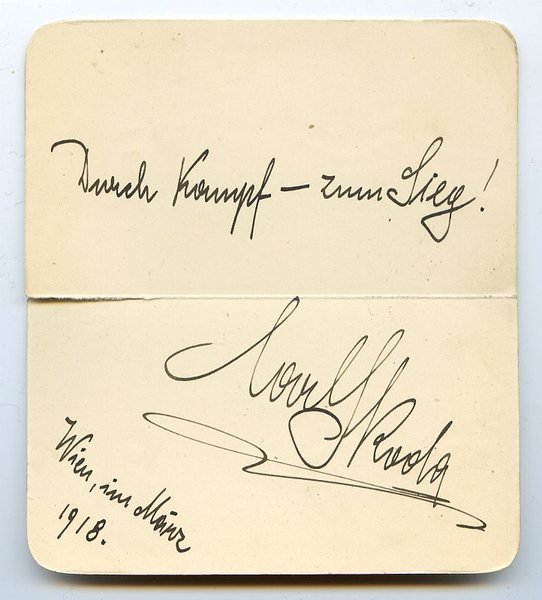 Durch Kampf – zum Sieg!
Carl Skoda
Wien, im März
1918.